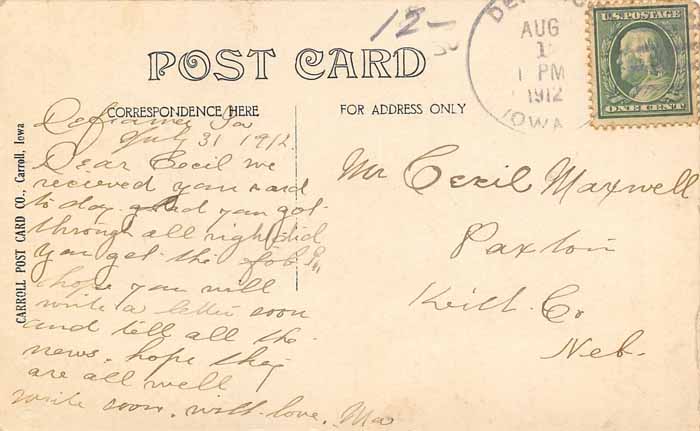 12-
DE
AUG
1
1 PM
1912
IOWA
U.S. POSTAGE
ONE CENT
POST CARD
CORRESPONDENCE HERE
FOR ADDRESS ONLY
CARROLL POST CARD CO., Carroll, Iowa
Defiance Ia
July 31 1912.
Dear Cecil we
recieved your card
to day glad you got
through all right did
you get the job
hope you will
write a letter soon
and tell all the
news. hope they
are all well
write soon. with love. Ma
Mr Cecil Maxwell
Paxton
Keith. Co
Neb.